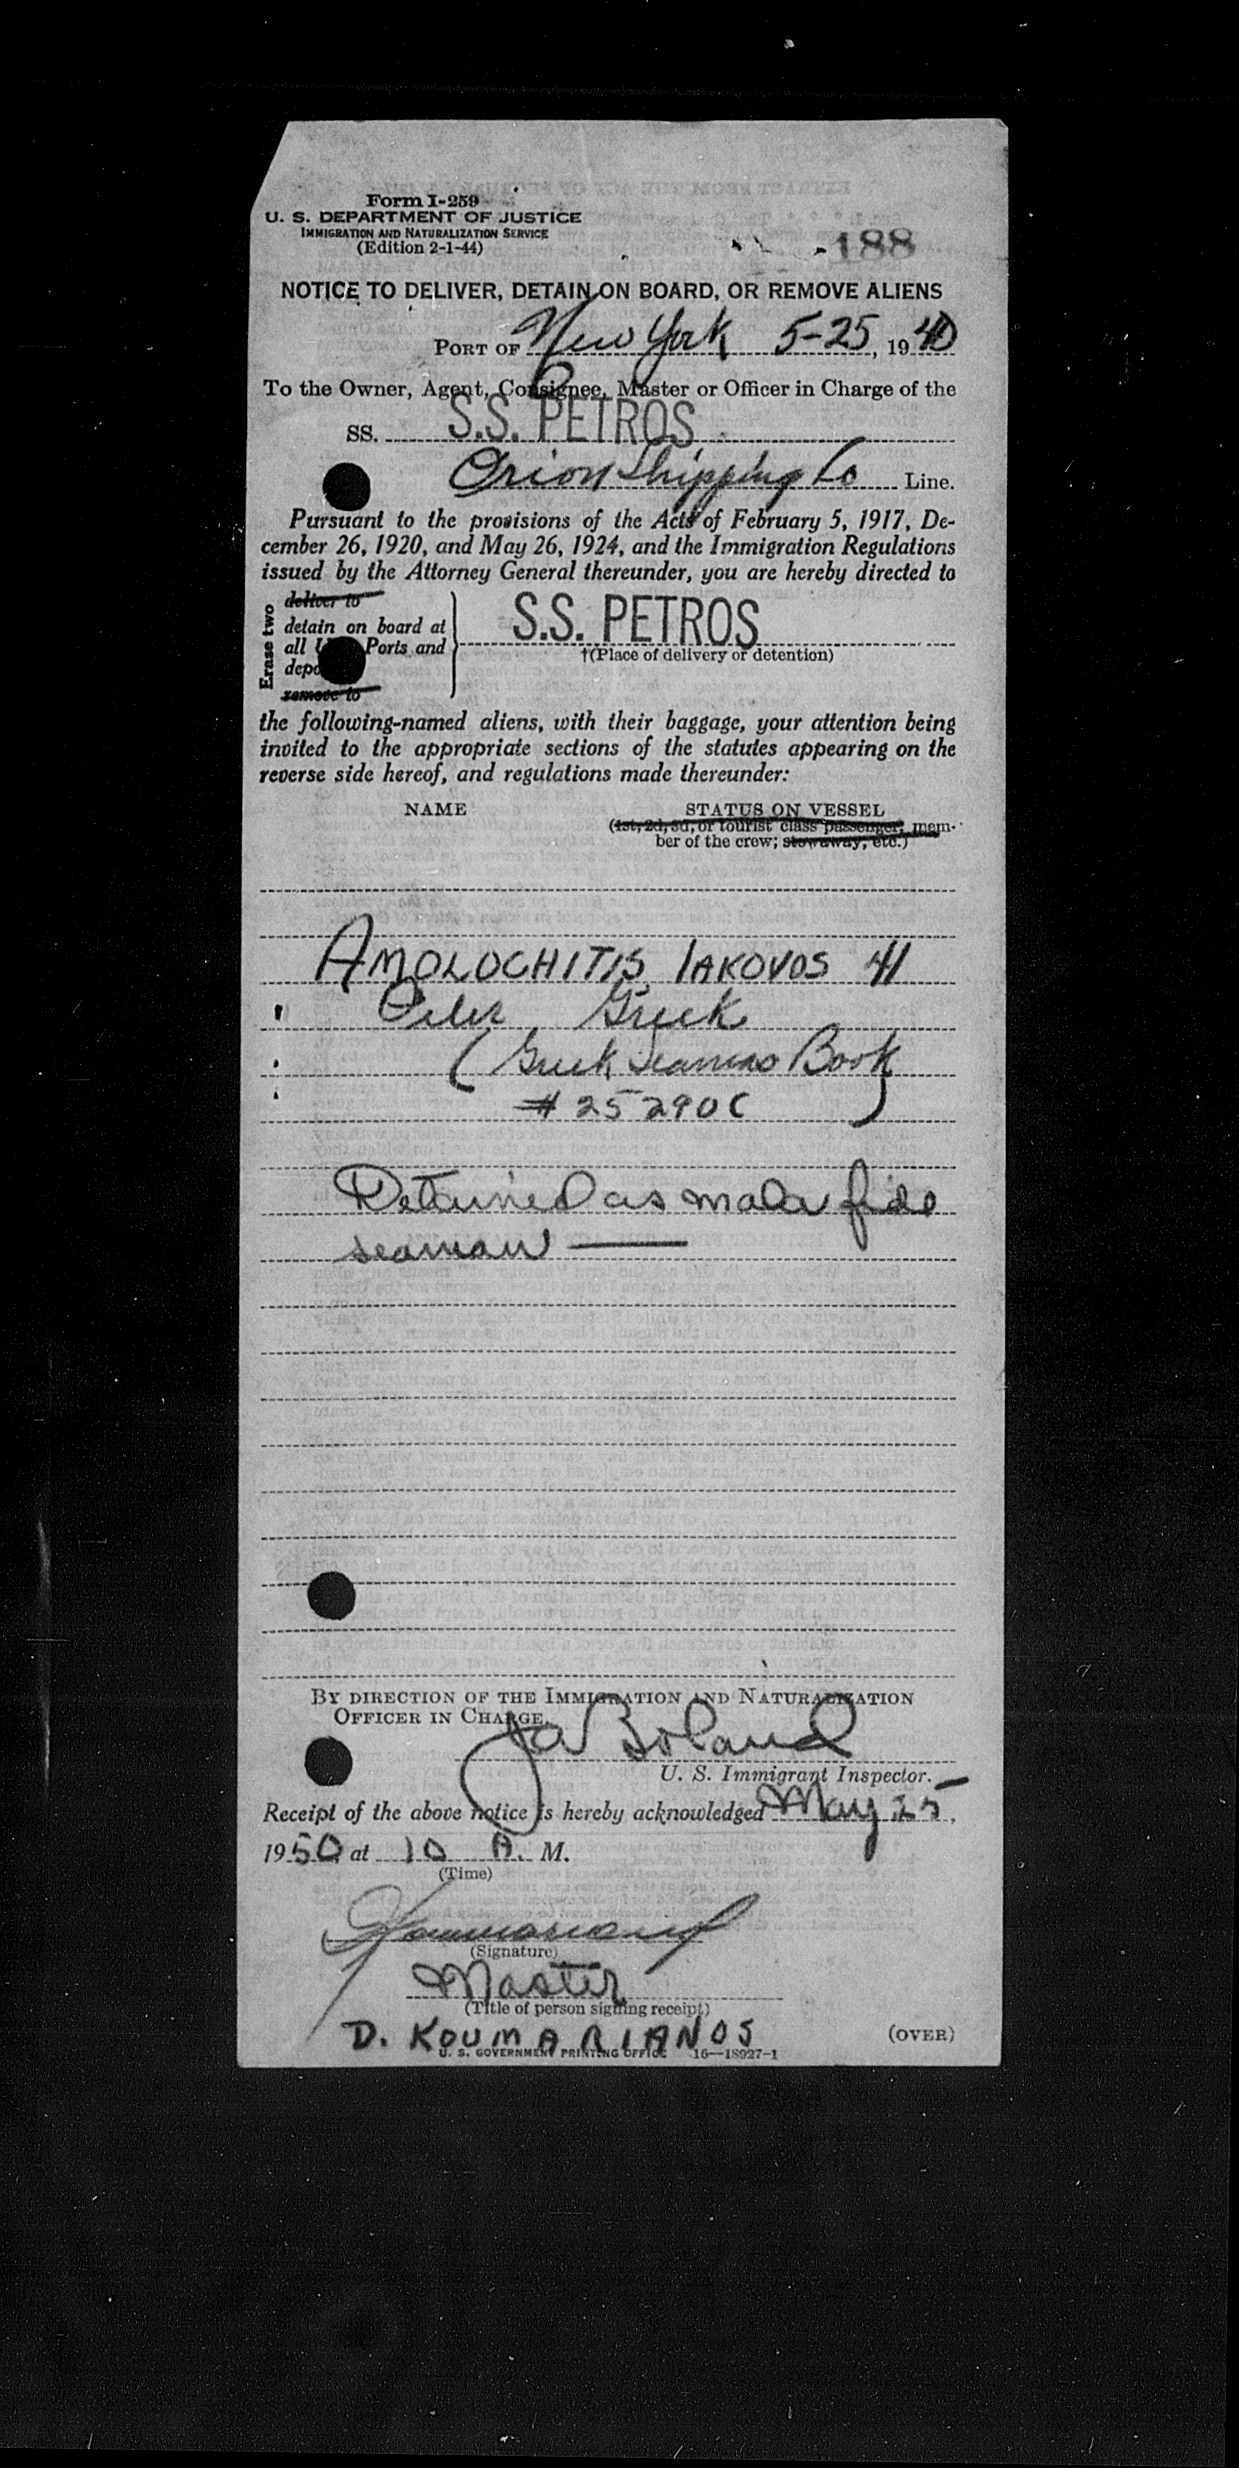 Form I-259
U. S. DEPARTMENT OF JUSTICE
IMMIGRATION AND NATURALIZATION SERVICE
(Edition 2-1-44)
188
NOTICE TO DELIVER, DETAIN ON BOARD, OR REMOVE ALIENS
PORT OF New York 5-25, 1940
To the Owner, Agent, Consignee, Master or Officer in Charge of the
SS. S.S. PETROS
Orion Shipping Co Line.
Pursuant to the provisions of the Acts of February 5, 1917, De-
cember 26, 1920, and May 26, 1924, and the Immigration Regulations
issued by the Attorney General thereunder, you are hereby directed to
Erase two
deliver to
detain on board at
all Ports and
remove to
S.S. PETROS
†(Place of delivery or detention)
the following-named aliens, with their baggage, your attention being
invited to the appropriate sections of the statutes appearing on the
reverse side hereof, and regulations made thereunder:
NAME STATUS ON VESSEL
(1st, 2d, 3d, or tourist class passenger, mem-
ber of the crew; stowaway, etc.)
AMOLOCHITIS IAKOVOS 41
Oiler Greek
(Greek Seamens Book
# 25290C )
Detained as mala fide
seaman —
BY DIRECTION OF THE IMMIGRATION AND NATURALIZATION
OFFICER IN CHARGE,
Ja Boland
U. S. Immigrant Inspector.
Receipt of the above notice is hereby acknowledged May 25,
1950 at 10 A. M.
(Time)
(Signature)
Master
(Title of person signing receipt)
D. KOUMARIANOS
(OVER)
U. S. GOVERNMENT PRINTING OFFICE 16—18927-1